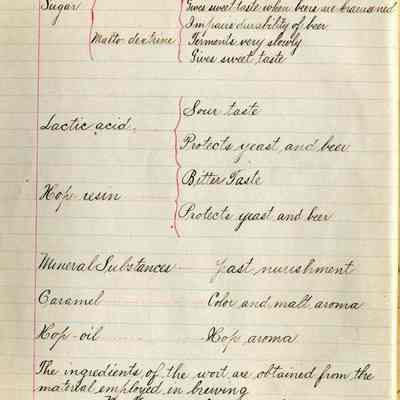 Sugar
Gives sweet taste when beers are krausened
Impairs durability of beer
Malto-dextrine
Ferments very slowly
Gives sweet taste
Sour taste
Lactic acid.
Protects yeast and beer
Bitter Taste
Hop resin
Protects yeast and beer
Mineral Substances yeast nurishment
Caramel Color and malt aroma
Hop-oil Hop aroma
The ingredients of the wort are obtained from the
material employed in brewing